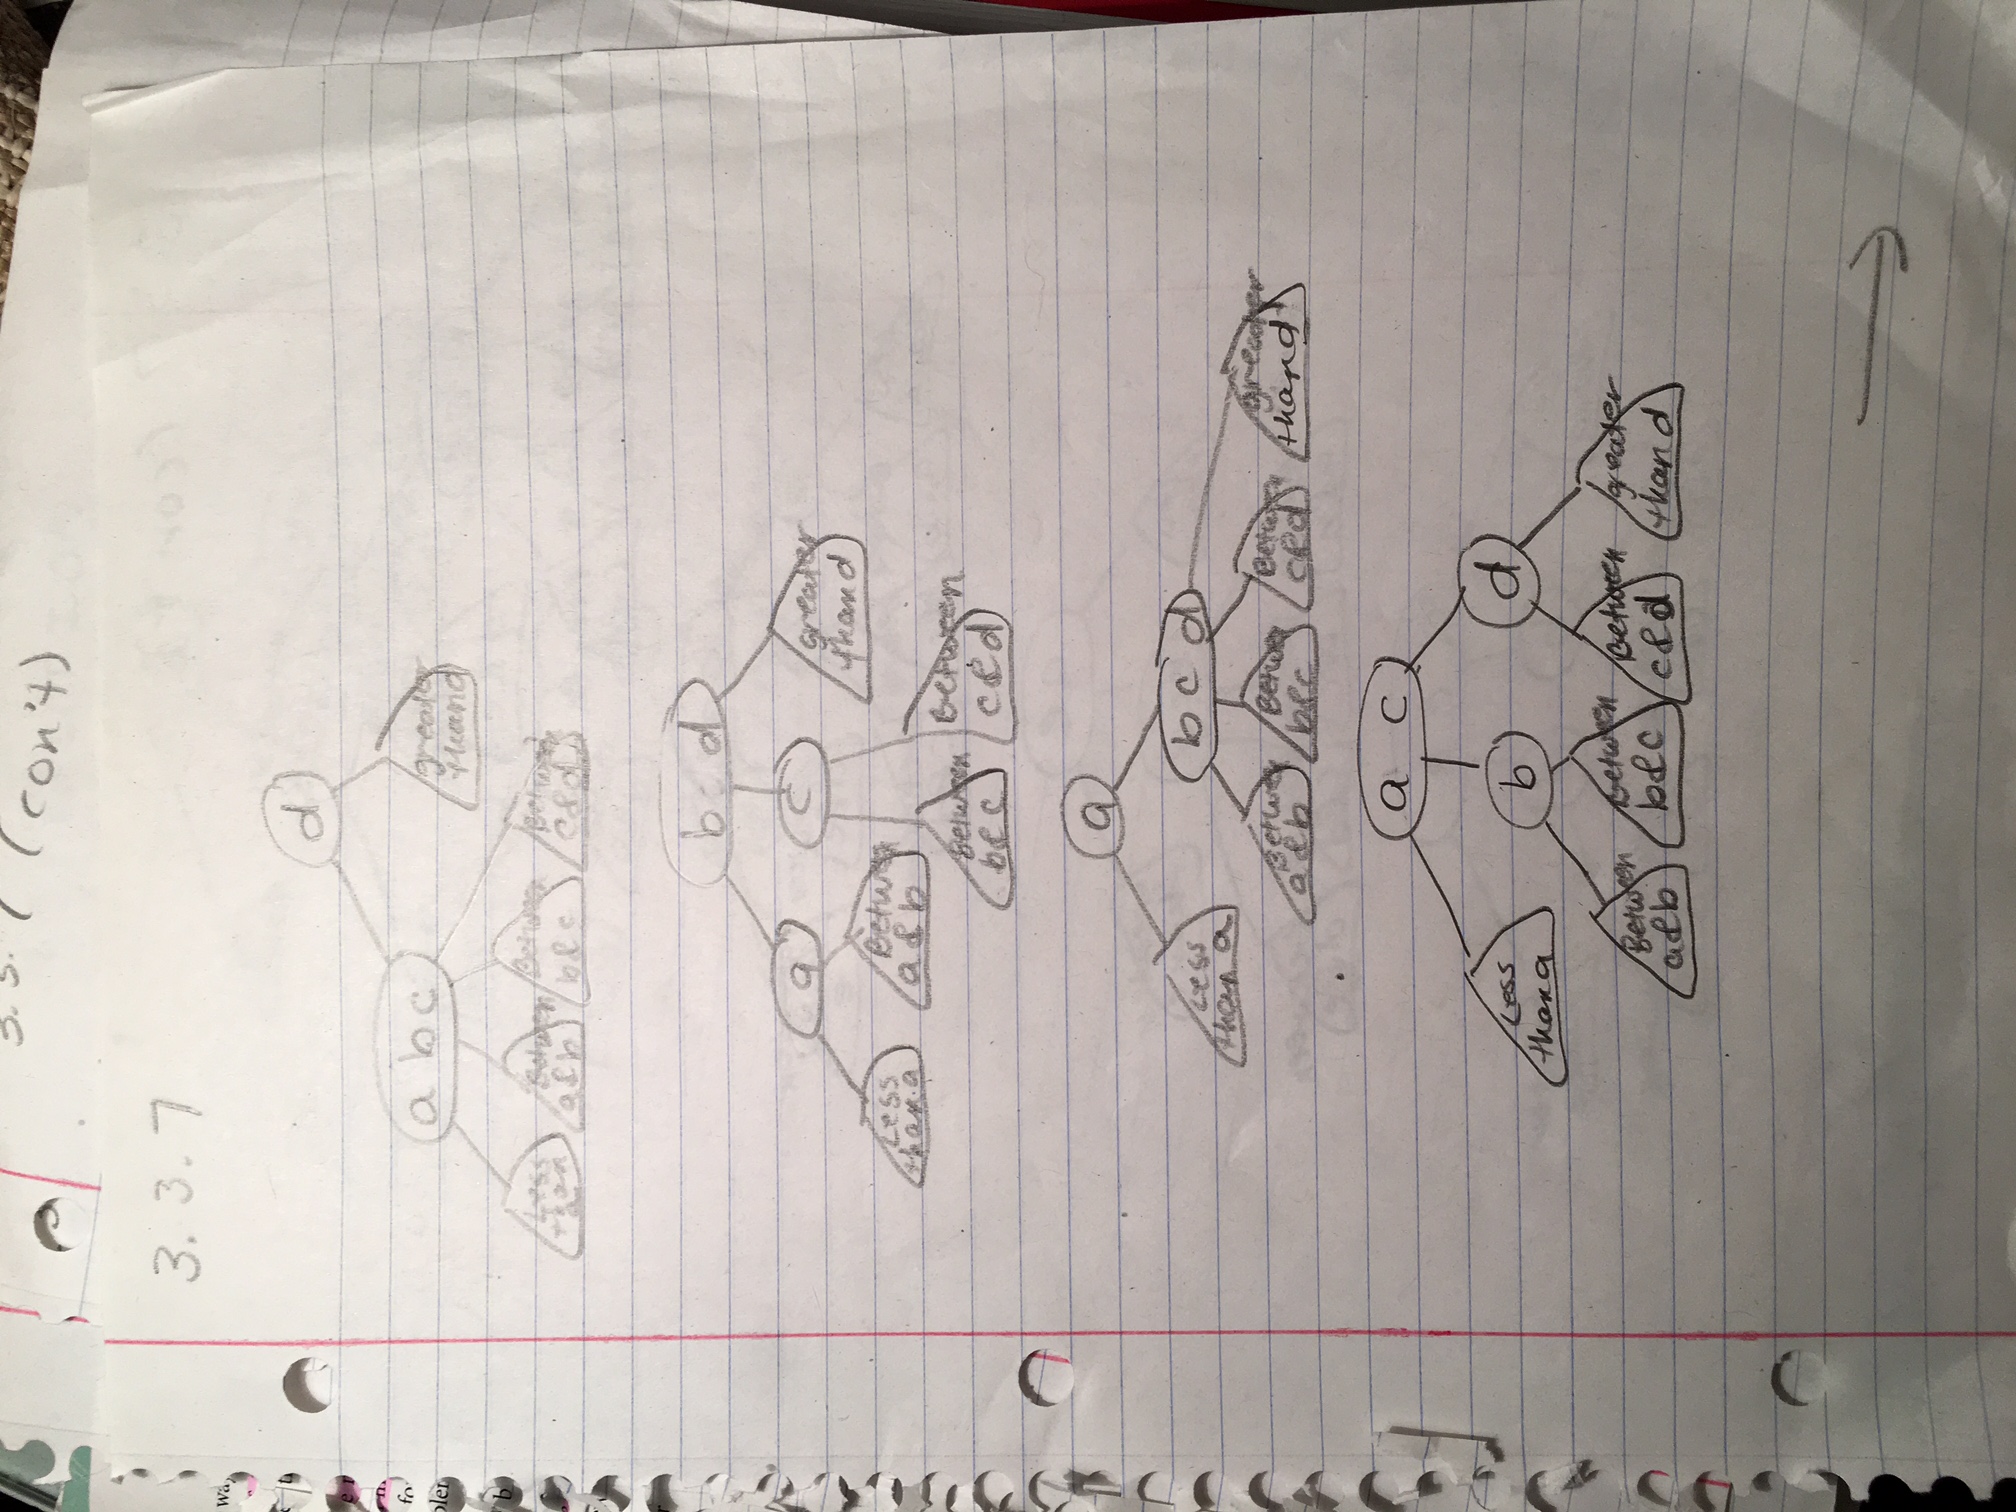 3.3.7 (con't)
3.3.7
d
a b c
greater
than d
Less
than
a
Between
a & b
Between
b & c
Between
c & d
b d
a
c
greater
than d
Less
than a
Between
a & b
Between
b & c
Between
c & d
a
Less
than a
b c d
Between
a & b
Between
b & c
Between
c & d
greater
than d
a c
Less
than a
b
d
Between
a & b
Between
b & c
Between
c & d
greater
than d